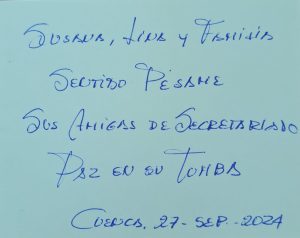 Susana, Lina y Familia
Sentido Pésame
Sus Amigas de Secretariado
Paz en su Tumba
Cuenca, 27-Sep.-2024